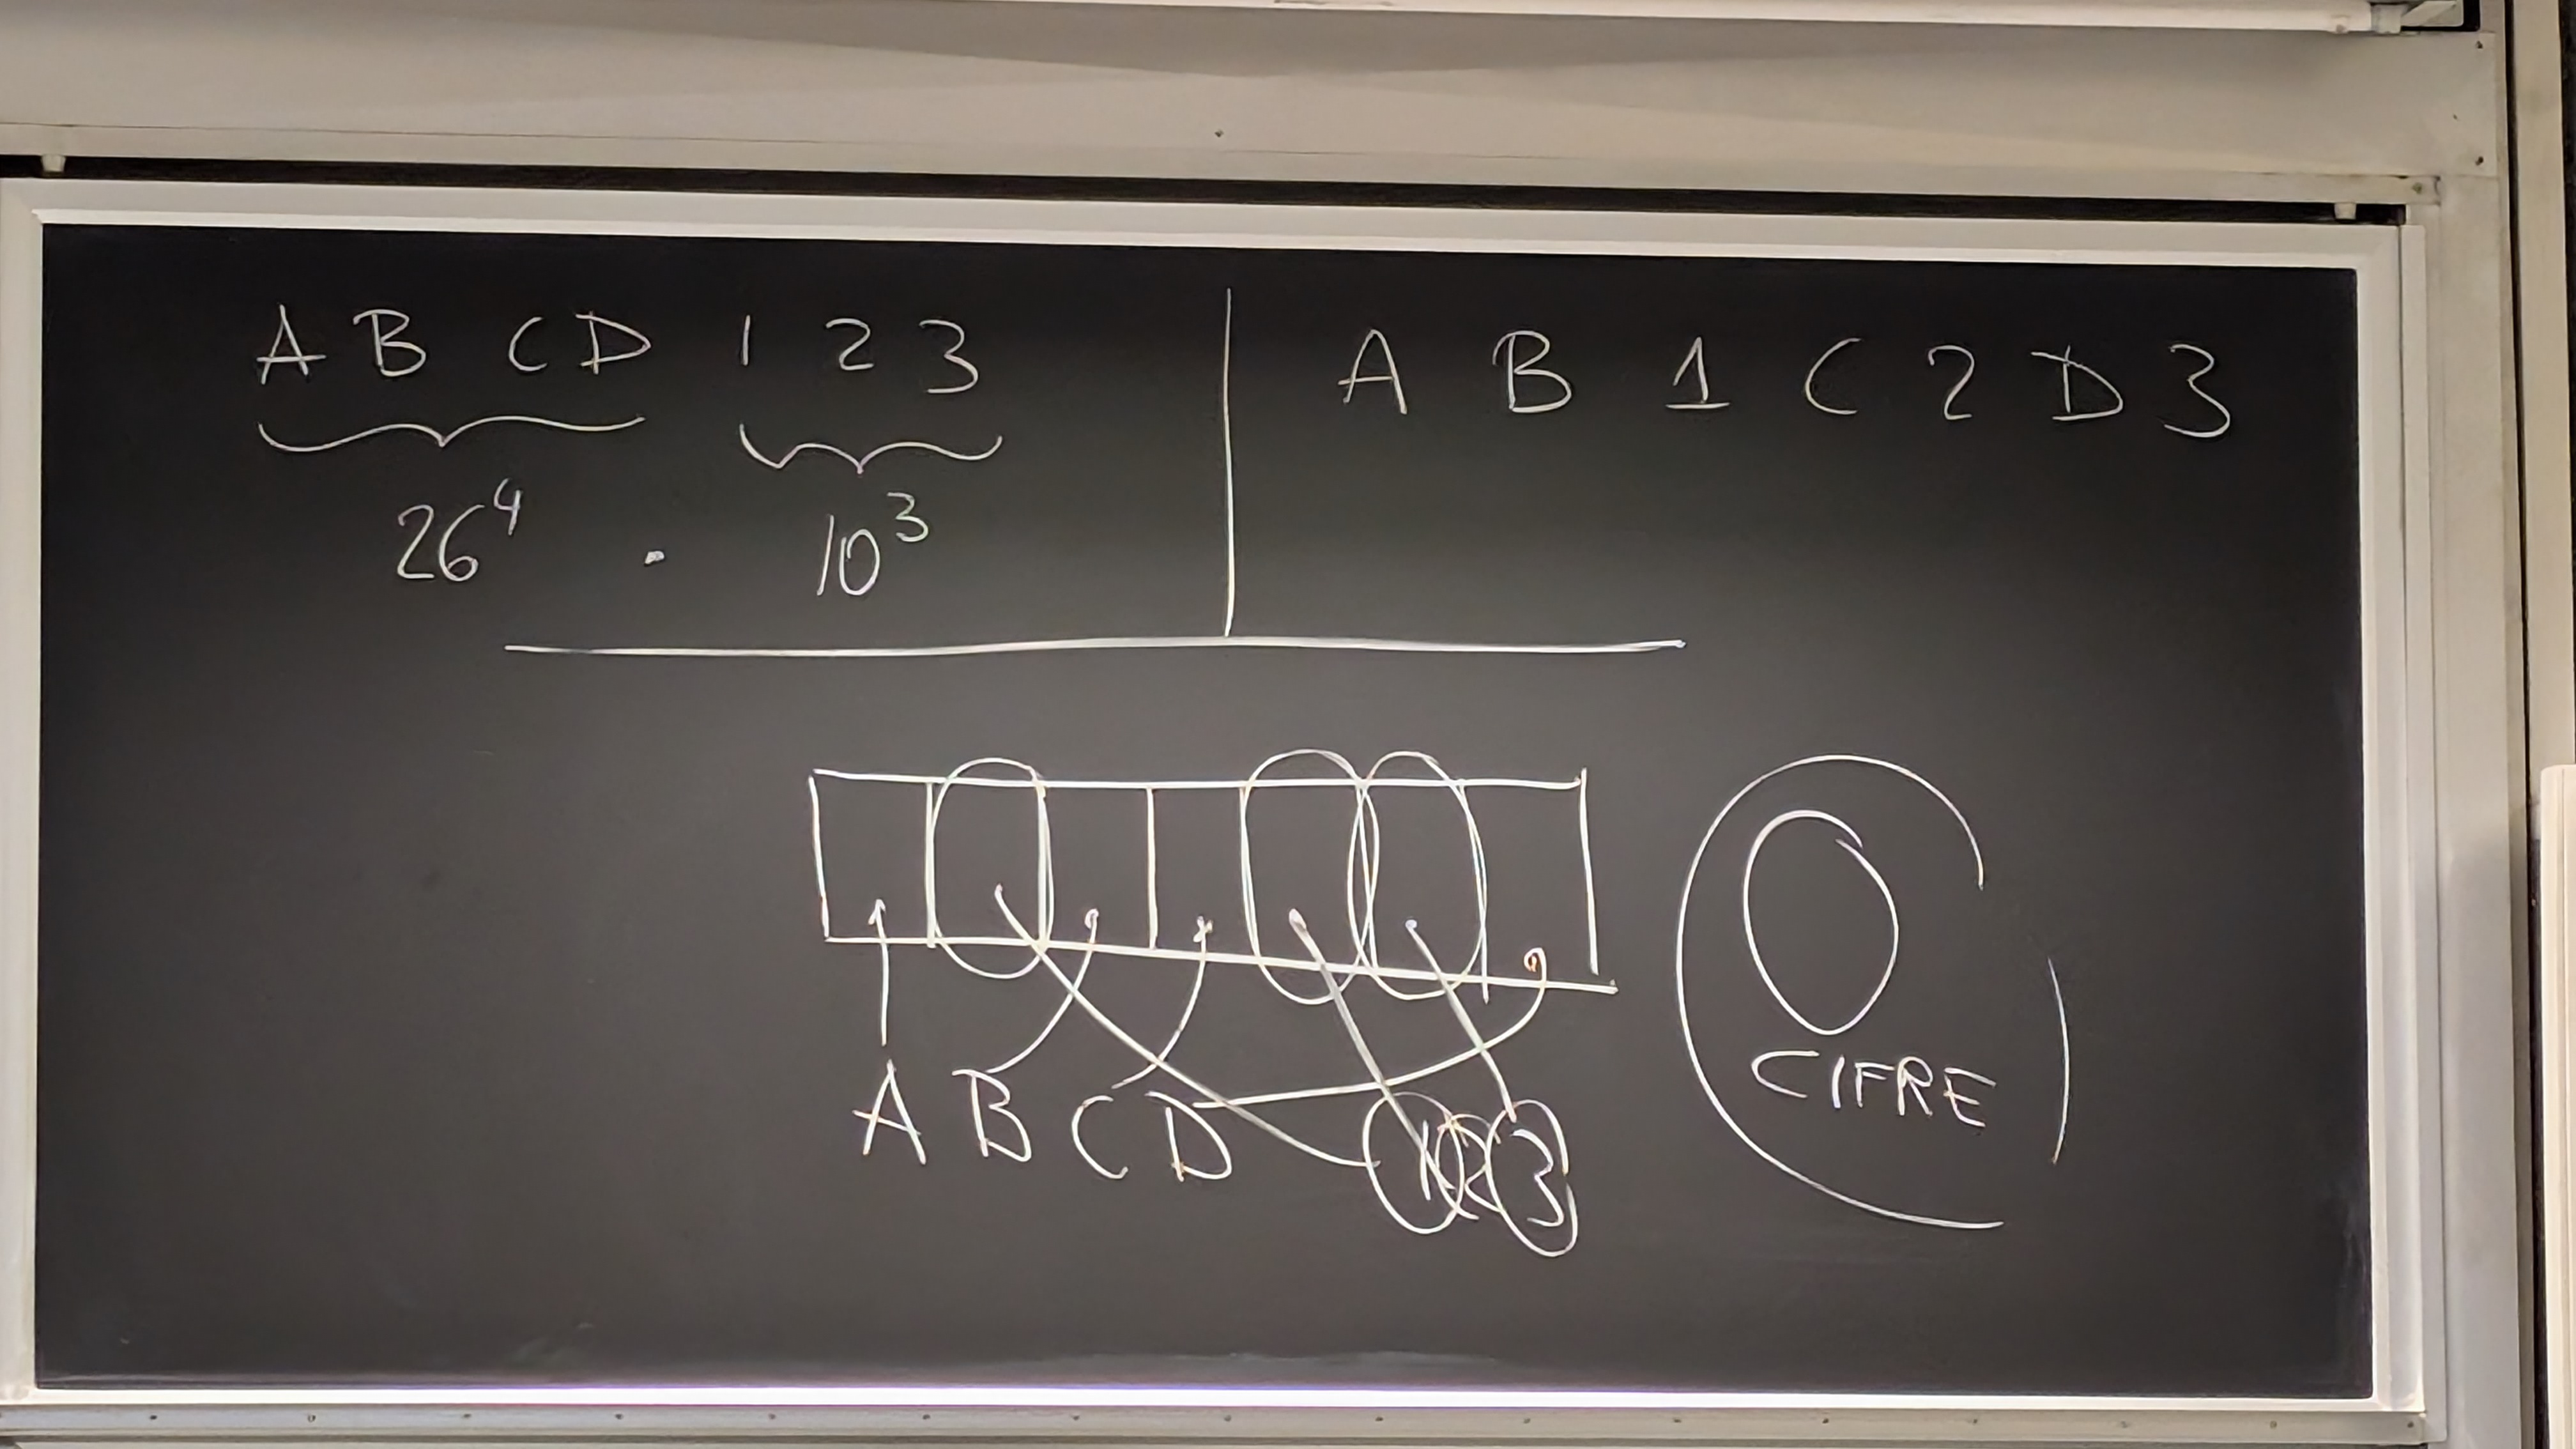 A B C D 1 2 3
26⁴ · 10³
A B 1 C 2 D 3
A B C D 1 2 3
CIFRE